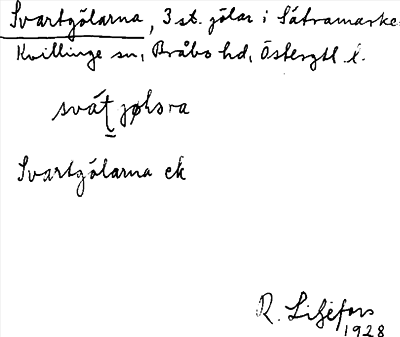 Svartgölarna, 3 st. gölar i Sätramarke
Kvillinge sn, Bråbo hd, Östergtl. l.
svát jøḷsra
Svartgölarna ek
R. Liljefors
1928